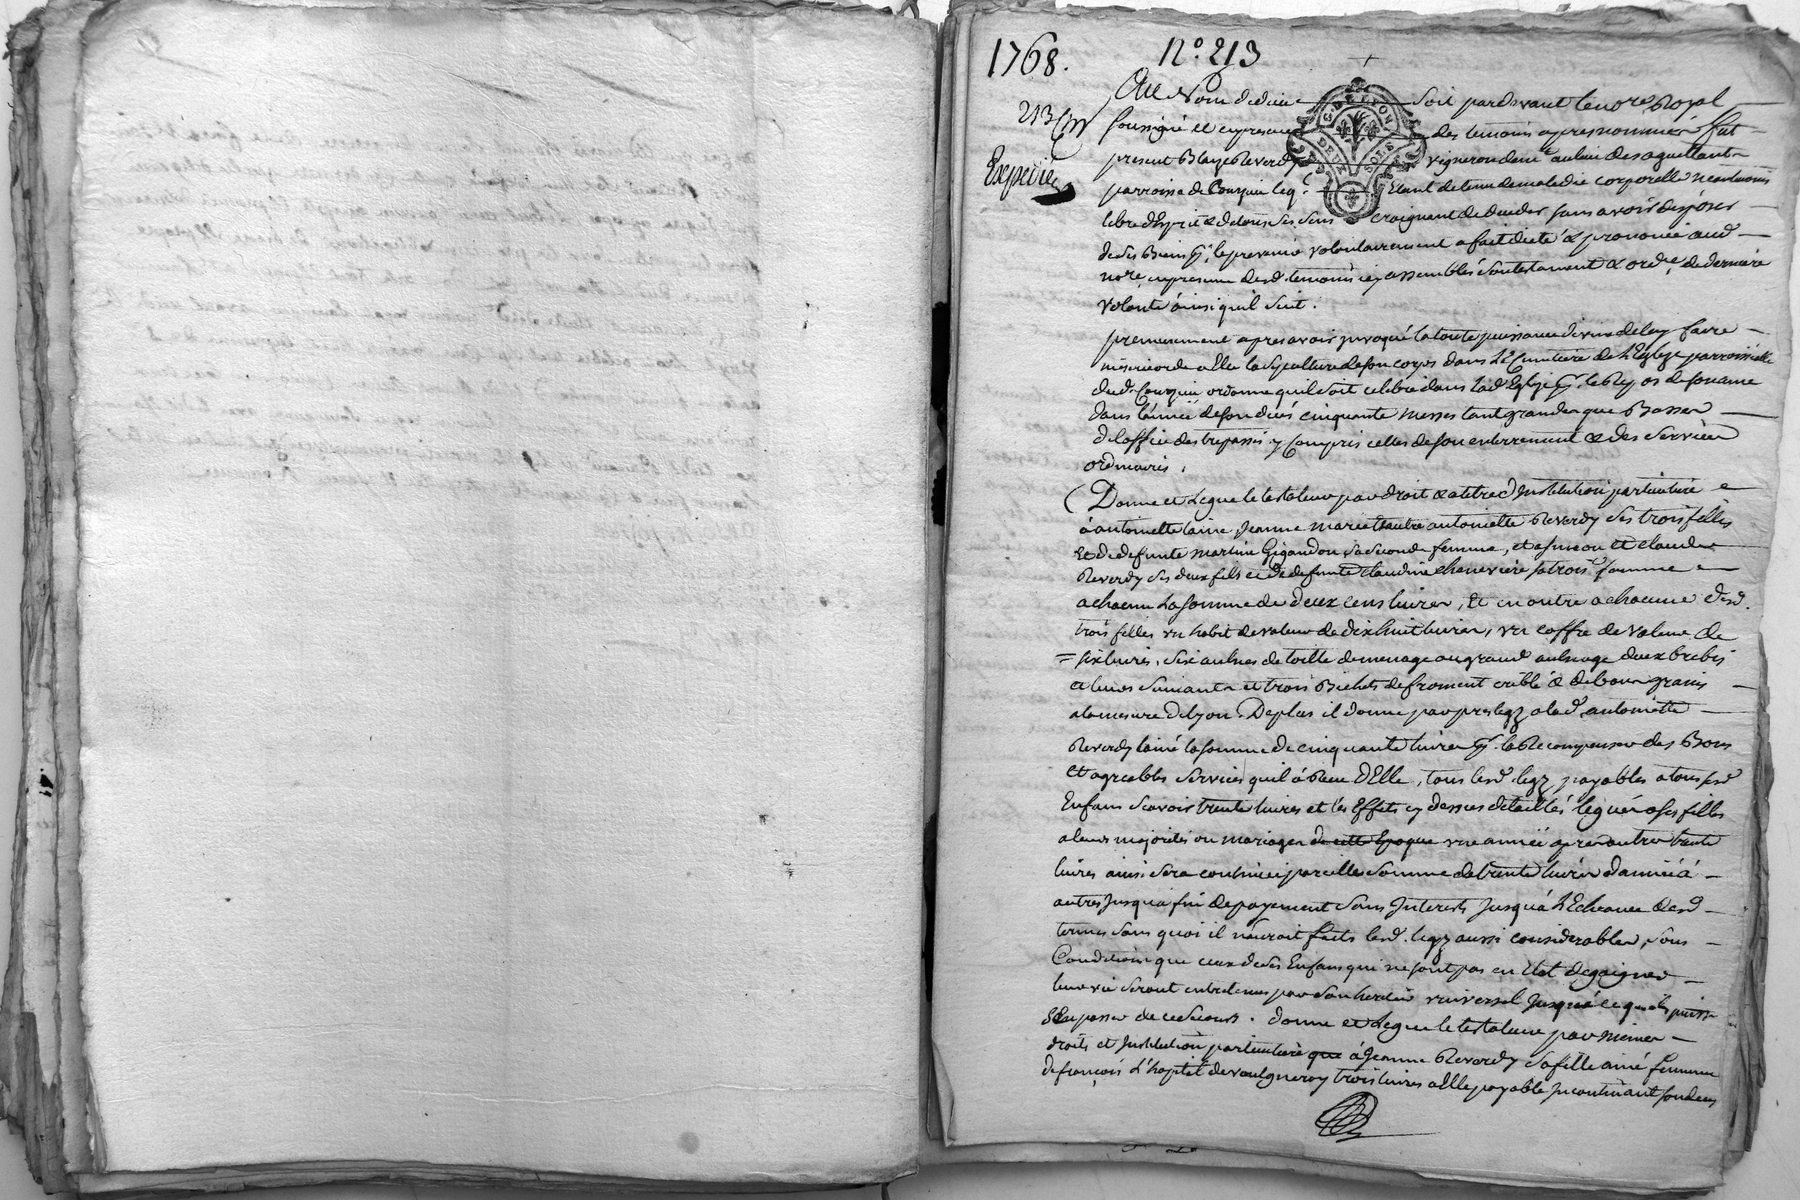 1768. N.º 213
213
Expedié
G. DE LYON
DEUX SOLS
Au Nom de dieu soit pardevant le no.re Royal
soussigné et en presence des temoins apres nommés fut
present Blaise Reverdy vigneron dem.t au lieu de
parroisse de Courzieu leq.l Etant detenu de maladie corporelle neantmoins
libre d'Esprit & de tous ses sens craignant de deceder sans avoir disposer
de ses Biens volontairement a fait dicté & prononcé aud.
no.re en presence desd. temoins icy assemblés son testament & ord.e de derniere
volonté ainsi quil suit.
premierement apres avoir invoqué la toute puissance divine de luy faire
misericorde Elle la sepulture de son corps dans le Cimetiere de l'Eglise parroissialle
dud. Courzieu ordonne quil soit celebré dans lad. Eglise p.r le Repos de son ame
dans l'année de son decés cinquante messes tant grandes que Basses
de l'office des trepassés y compris celles de son enterrement & des services
ordinaires.
Donne et Legue le testateur par droit & a titre d'Institution particuliere
a antoinette lainé, Jeanne marie & autre antoinette Reverdy ses trois filles
Et de defunte martine Gigandon sa seconde femme, et a simeon et claude
Reverdy ses deux fils et de defunte claudine chenevière sa trois.e femme
a chacun La somme de deux cens livres, Et en outre a chacune desd.
trois filles un habit de valeur de dix huit livres, un coffre de valeur de
= six livres, six aulnes de toille de menage au grand aulnage deux brebis
et leurs suivants et trois Bichets de froment criblé & de bons grains
a la mesure de lyon. De plus il donne par prelegz a lad. antoinette
Reverdy lainé la somme de cinquante livres p.r la Recompenser des Bons
et agreables services quil à Reçu d'Elle, tous lesd. legz payables a tous sesd.
Enfans scavoir trente livres et les Effets cy dessus detaillés legués a ses filles
a leurs majorités ou mariages de cette Epoque une année apres autres trente
livres ainsi sera continué pareille somme de trente livres d'année à
autres Jusqu'a fin de payement sans Interests Jusqu'à L'Echeance desd.
termes sans quoi il n'auroit faits lesd. legz aussi considerables, sous
Condition que ceux de ses Enfans qui ne sont pas en Etat de gaigner
leur vie seront entretenus par son heritier universel Jusqu'à ce quils puisse
s'En passer de ce secours. donne et Legue le testateur par memes
droits et Institution particuliere que à Jeanne Reverdy sa fille ainé femme
de françois L'hopital de vaulgneray trois livres a Elle payable Incontinant son deces